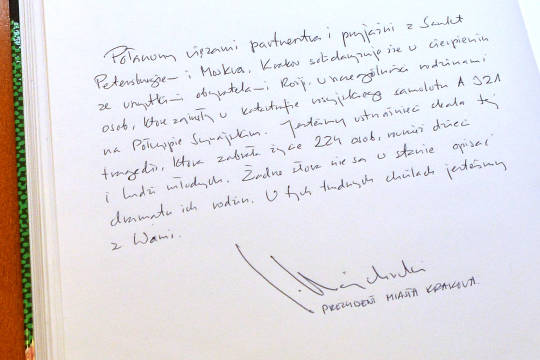 Połączony więzami partnerstwa i przyjaźni z Sankt
Petersburgiem i Moskwą, Kraków solidaryzuje się w cierpieniu
ze wszystkimi obywatelami Rosji, w szczególności rodzinami
osób, które zginęły w katastrofie rosyjskiego samolotu A 321
na Półwyspie Synajskim. Jesteśmy wstrząśnięci skalą tej
tragedii, która zabrała życie 224 osób, również dzieci
i ludzi młodych. Żadne słowa nie są w stanie opisać
dramatu ich rodzin. W tych trudnych chwilach jesteśmy
z Wami.
PREZYDENT MIASTA KRAKOWA